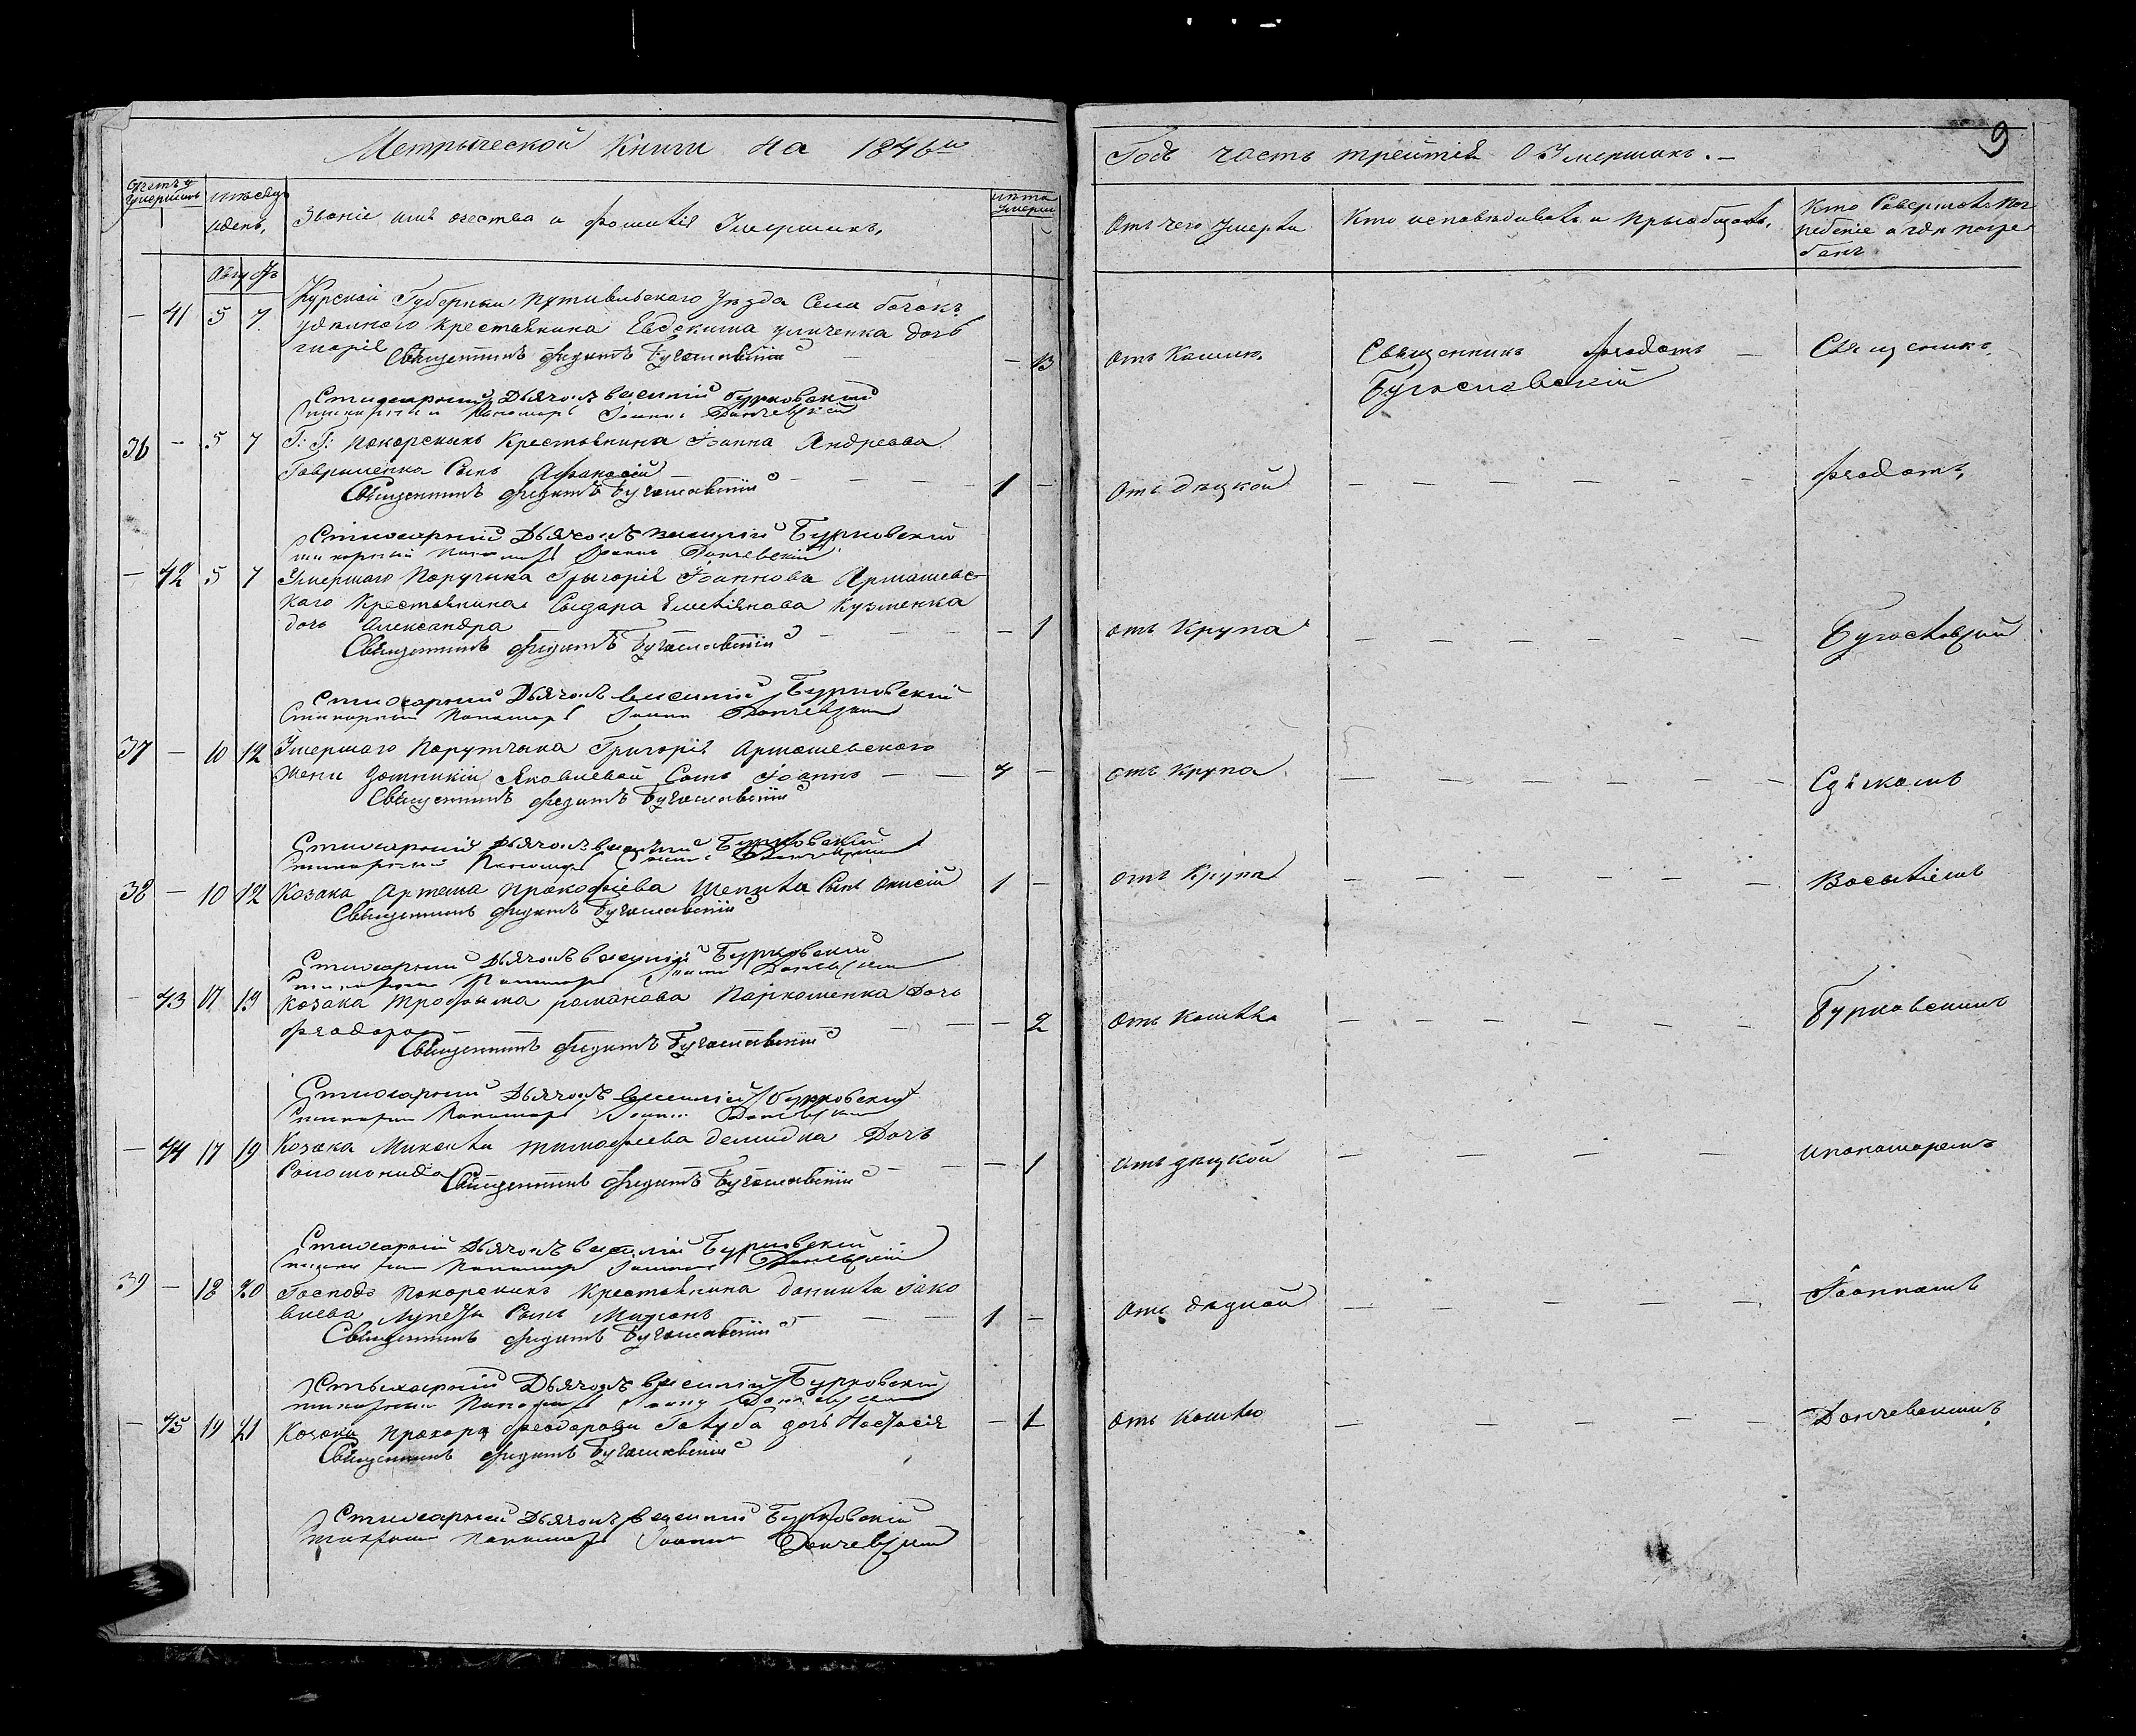 Метрыческой Книги на 1846й
Годъ часть трейтія О Умершихъ. —
9
Счетъ у
умершихъ
мѣсяцъ
иденъ,
Званіе имя очества и фомилія Умершихъ,
лѣта
умерш
Отъ чего Умерли
Кто исповѣдивалъ и Прыобщалъ,
Кто Савершалъ пог
ребеніе и гдѣ погре
бенъ
Августъ
— 41 5 7. Курской Губерніи, Путивльского Уезда Села
крестьянина Евдокима дочь
марія
Священникъ Федотъ Бугославскій — 13
Отъ Кашлю.
Священникъ Феодотъ —
Бугославскій
Священикъ
Стихарный Дьячокъ Василій Бурковскій
Стихарный Пономарь Іоаннъ Данчевскій
36 — 5 7 Г: Г: Покорскихъ Крестьянина Іоанна Андреева
Гавриленка Сынъ Афанасій
Священникъ Федотъ Бугославскій 1 —
Отъ дѣцкой — — — — — — —
Феодотъ,
Стихарный Дьячокъ Василій Бурковскій
Стихарный Пономарь Іоаннъ Данчевскій
— 42 5 7 Умершаго Поручыка Грыгорія Іоаннова Армашевс
каго Крестьянина Сыдора Емеліянова Кузменка
дочь Александра
Священникъ Федотъ Бугославскій — 1
отъ Крупа — — — — — — —
Бугославскій
Стихарный Дьячокъ Василій Бурковскій
Стихарный Пономарь Іоаннъ Данчевскій
37 — 10 12 Умершаго Порутчыка Григорія Армашевскаго
жены Яковлевой Сынъ Іоаннъ — — 4 —
Священникъ Федотъ Бугославскій
отъ крупа. — — — — — — —
Сдѣякомъ
Стихарный Дьячокъ Василій Бурковскій
Стихарный Пономарь Іоаннъ Данчевскій
38 — 10 12 Козака Артема Прокофіева Шепила Сынъ Онисій 1 —
Священникъ Федотъ Бугославскій
отъ Крупа — — — — — — —
Василіемъ
Стихарный Дьячокъ Василій Бурковскій
Стихарный Пономарь Іоаннъ Данчевскій
— 43 17 19 Козака Трофыма романова Пархоменка Дочь
Феодора
Священникъ Федотъ Бугославскій — 2
Отъ кашля — — — — — — —
Бурковскимъ
Стихарный Дьячокъ Василій Бурковскій
Стихарный Пономарь Іоаннъ Данчевскій
— 44 17 19 Козака Михаила тимофіева демидка Дочь
Соломонида
Священникъ Федотъ Бугославскій — — — 1
отъ дѣцкой — — — —
ипономаремъ
Стихарный Дьячокъ Василій Бурковскій
Стихарный Пономарь Іоаннъ Данчевскій
39 — 18 20 Господъ Покорскихъ Крестьянина данила Іако
влева Сынъ Миронъ — — — 1 —
Священникъ Федотъ Бугославскій
Отъ дѣцкой — — — — —
Іоанномъ
Стыхарный Дьячокъ Василій Бурковскій
Стихарный Пономарь Іоаннъ Данчевскій
— 45 19 21 Козака Прохора Феодорова Голуба дочь Настасія — 1
Священникъ Федотъ Бугославскій
Отъ кашлю — — — — — —
Данчевскимъ,
Стихарный Дьячокъ Василій Бурковскій
Стихарный Пономарь Іоаннъ Данчевскій